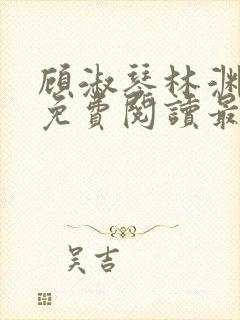 顾淑琴林渊
免費閱讀最
吴吉